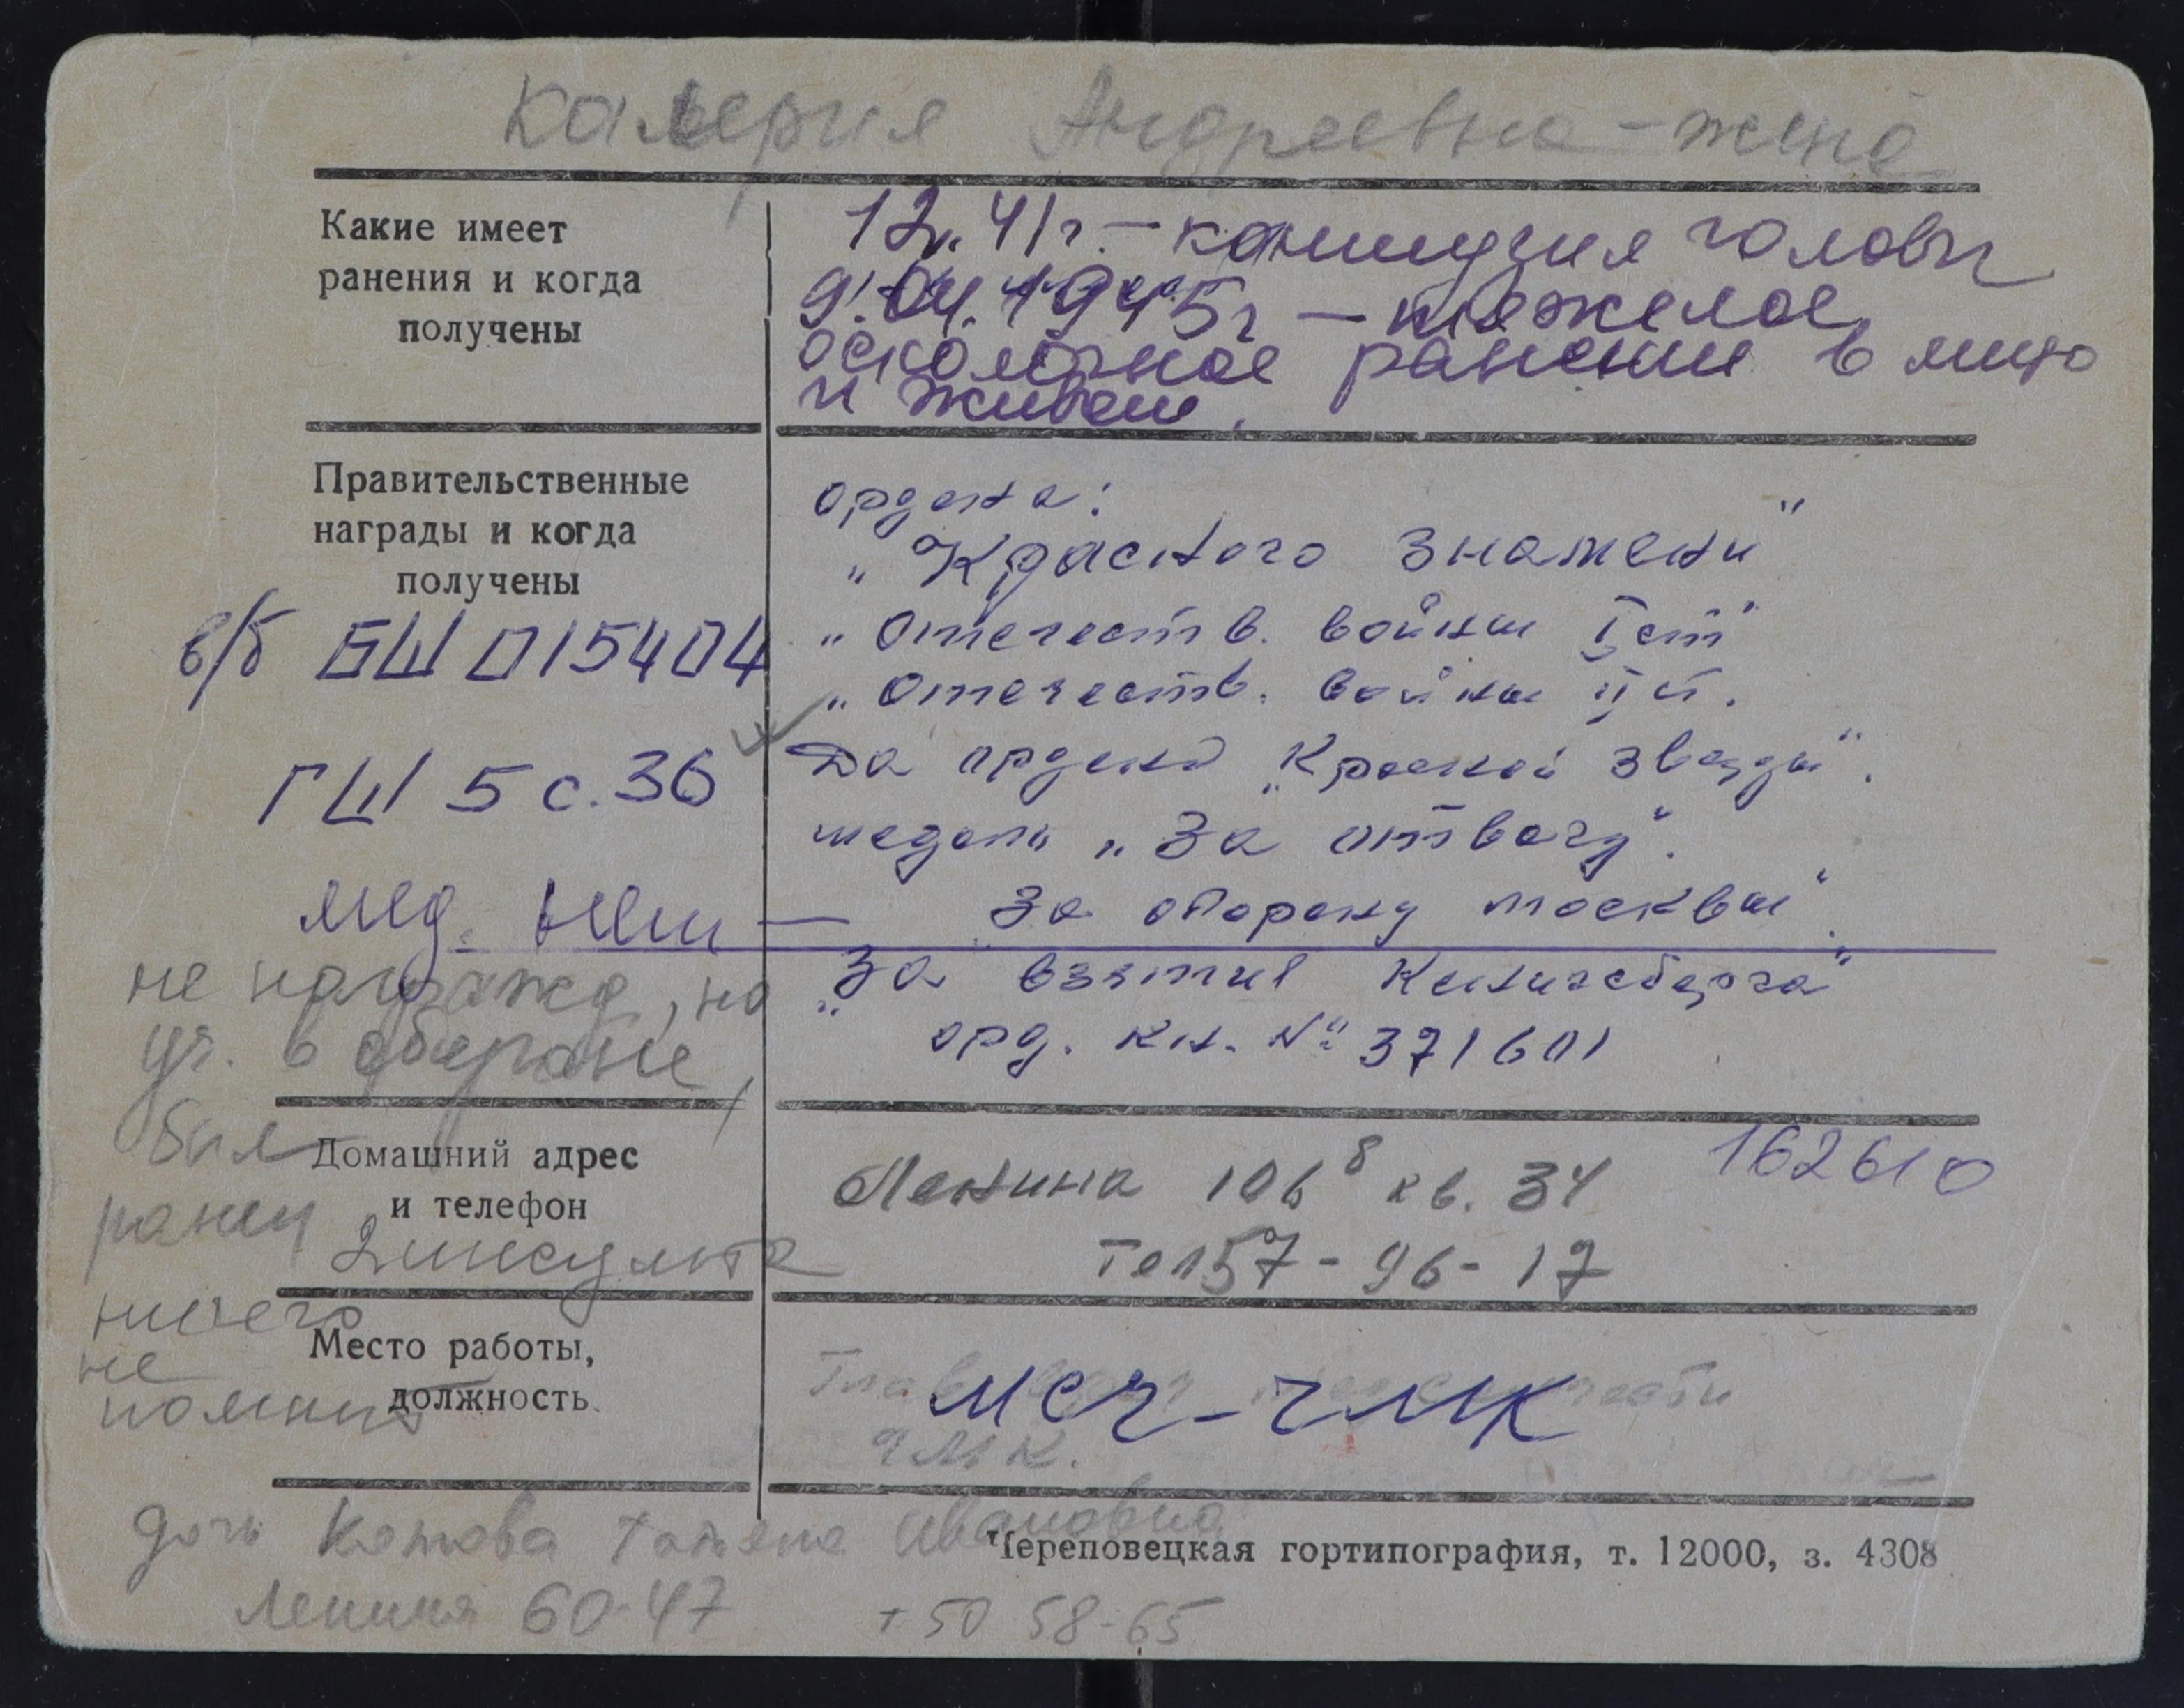 Калерия Андреевна - жена
Какие имеет
ранения и когда
получены
12. 41 г. - контузия головы
9.04.1945 г - тяжелое
осколочное ранение в лицо
и живот.
Правительственные
награды и когда
получены
в/б БШ 015404
ГШ 5 с. 36
мед. нет —
не награжд, но
уч. в обороне,
был
ранен
2 инсульта
ничего
не
помнит
ордена:
„Красного Знамени"
„Отечеств. войны I ст"
„Отечеств. войны II ст.
Два ордена „Красной звезды".
медаль „За отвагу".
„За оборону Москвы".
„За взятие Кенигсберга"
орд. кн. № 371601
Домашний адрес
и телефон
162610
Ленина 106 8 кв. 34
Тел 57-96-17
Место работы,
должность
МСЧ-ЧМК
ЧМК.
дочь Котова Татьяна Ивановна
Череповецкая гортипография, т. 12000, з. 4308
Ленина 60-47 т 50 58-65